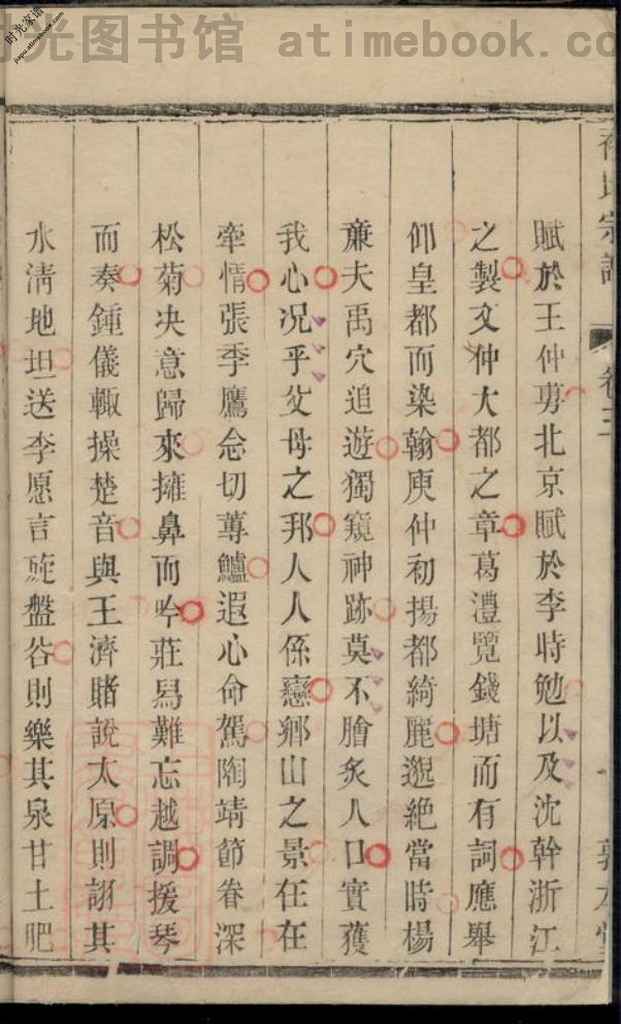 时光图书馆 atimebook.co
时光家谱
宗譜
卷三
賦於王仲旉北京賦於李時勉以及沈幹浙江
之製文仲大都之章葛澧覽錢塘而有詞應舉
仰皇都而染翰庾仲初揚都綺麗逴絶當時楊
亷夫禹穴追遊獨窺神跡莫不膾炙人口實獲
我心况乎父母之邦人人係戀鄉山之景在在
牽情張季鷹念切蓴鱸遐心命駕陶靖節眷深
松菊决意歸來擁鼻而吟莊舄難忘越調援琴
而奏鍾儀輙操楚音與王濟賭說太原則詡其
水清地坦送李愿言旋盤谷則樂其泉甘土肥